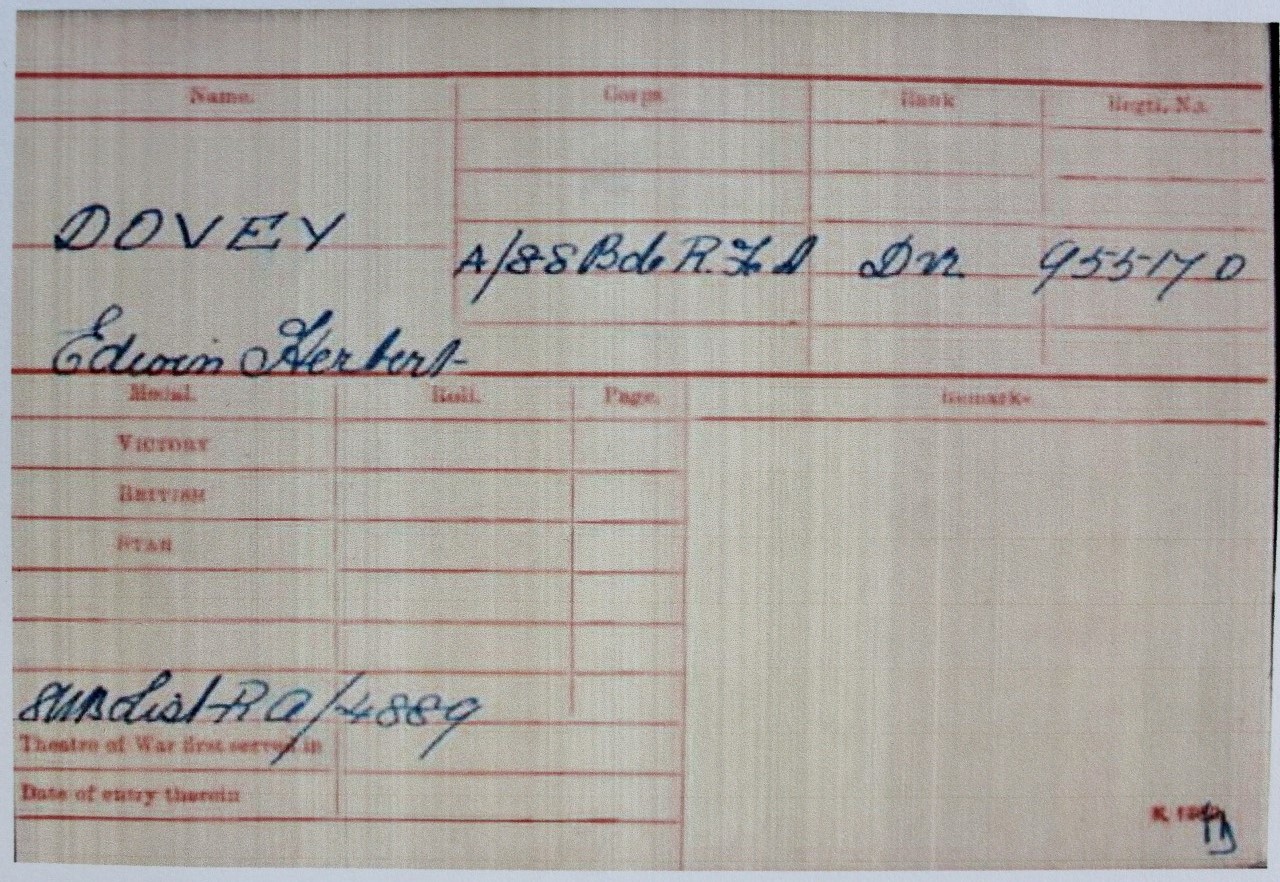 Name. Corps. Rank Regtl. No.
DOVEY
A/88 Bde R.F.A Dvr 955170
Edwin Herbert
Medal. Roll. Page. Remarks
VICTORY
BRITISH
STAR
SWB List RA/4889
Theatre of War first served in
Date of entry therein